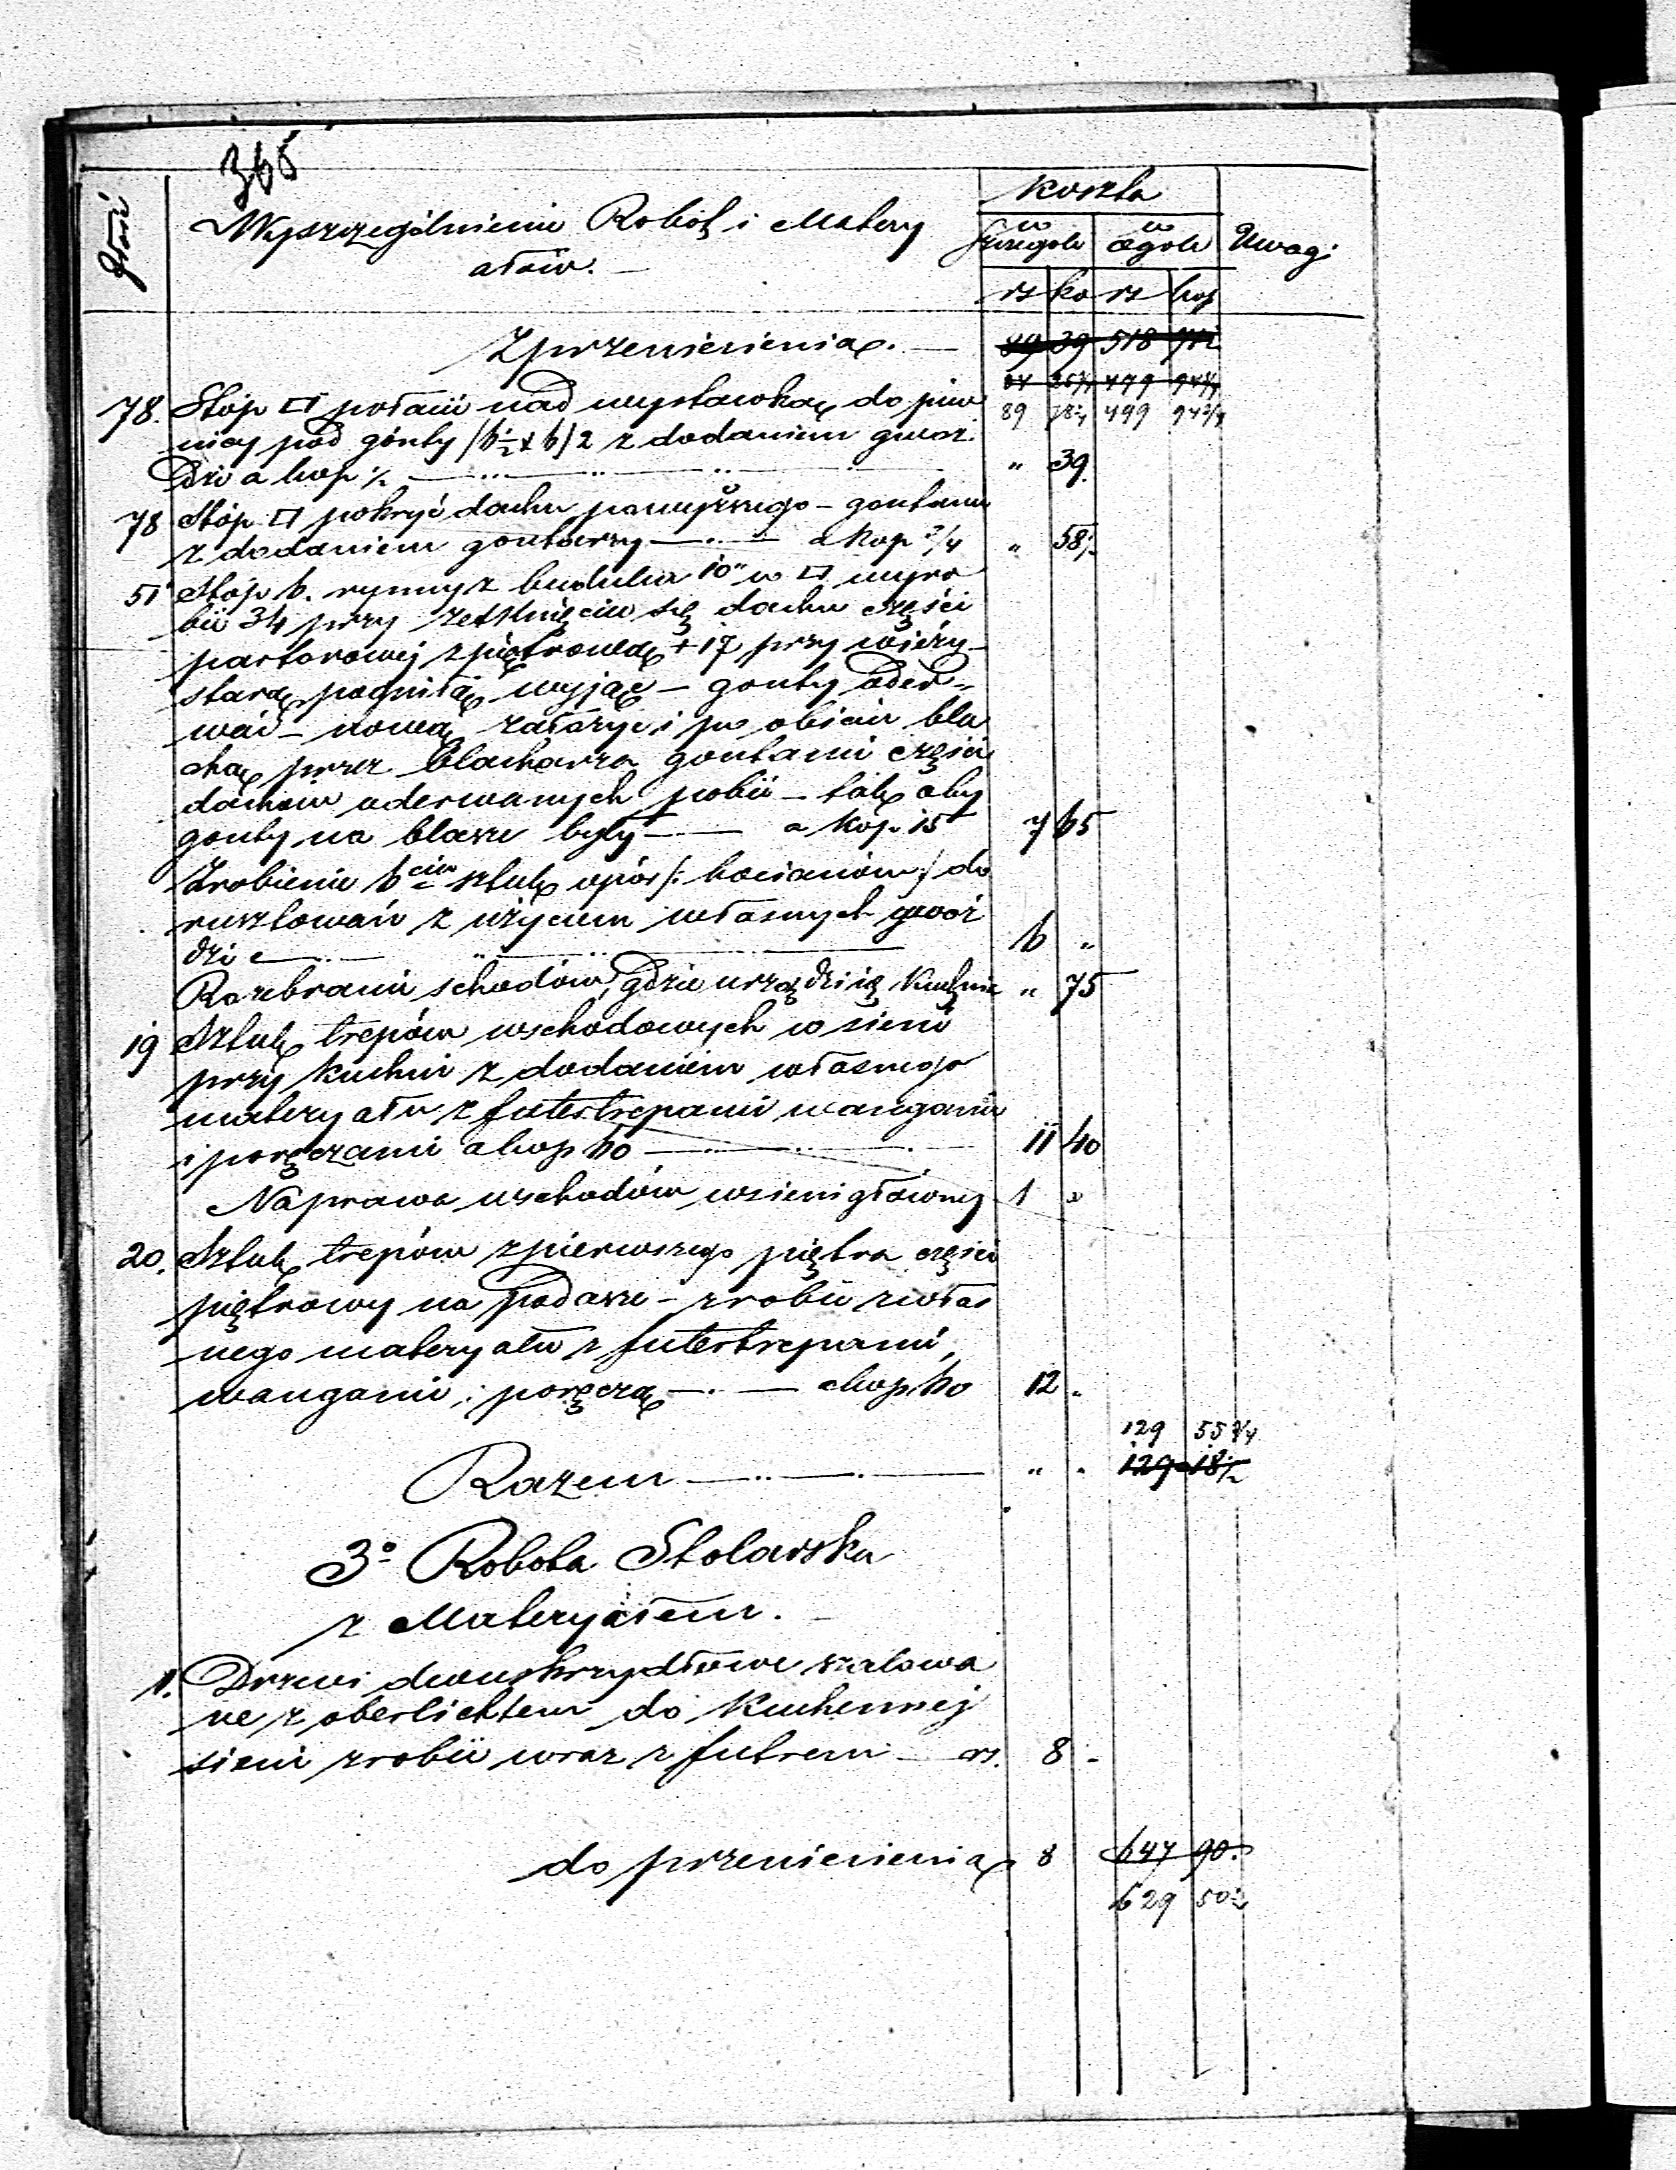 365
Ilość
Wyszczególnienie Robot i Matery
ałów. —
Koszta
w szczegole
w ogole
Uwagi
rs ko rs kop
Z przeniesienia. — 89 39 518
499 94 3/4
78. Stóp □ połacić nad wystawką do piw 89 499 94 3/4
nicy pod gónty /6 1/2 x 6/2 z dodaniem gwoz.
dzi a kop 1/2 — " 39.
78 Stóp □ pokryć dachu powyższego — gontami
z dodaniem gontowzy — a kop 3/4 " 58 1/2
51 Stóp b. rynny z budulcu 10" w □ wyro
bić 34 przy zetknięciu się dachu części
parterowej z piętrową + 17 przy wieży —
starą pognitą wyjąć — gonty oder=
wać — nową założyć i po obiciu bla
chą przez blacharza gontami części
dachów oderwanych pobić — tak aby
gonty na blasze były — a kop. 15 7 65
Zrobienie 6ciu sztuk opór /: bocianów :/ do
rusztowań z użyciem własnych gwoź
dzi — 6 "
Rozebranie schodów, gdzie urządzi się kuchnie " 75
19 Sztuk trepów wschodowych w sieni
przy kuchni z dodaniem własnego
materyału z futertrepami wangami
i poręczami a kop 60 — 11 40
Naprawa wschodów w sieni główny 1 "
20. Sztuk trepów z pierwszego piętra części
piętrowy na poddasze — zrobić z włas
nego materyału z futertrepami,
wangami i poręczą — a kop. 60 12 "
129 55 3/4
Razem — " " 129 18 1/2
3o Robota Stolarska
z Materyałem. —
1. Drzwi dwuskrzydłowe szalowa
ne z oberlichtem do kuchennej
sieni zrobić wraz z futrem — rs. 8 -
do przeniesienia 8 647 90.
629 50 1/2